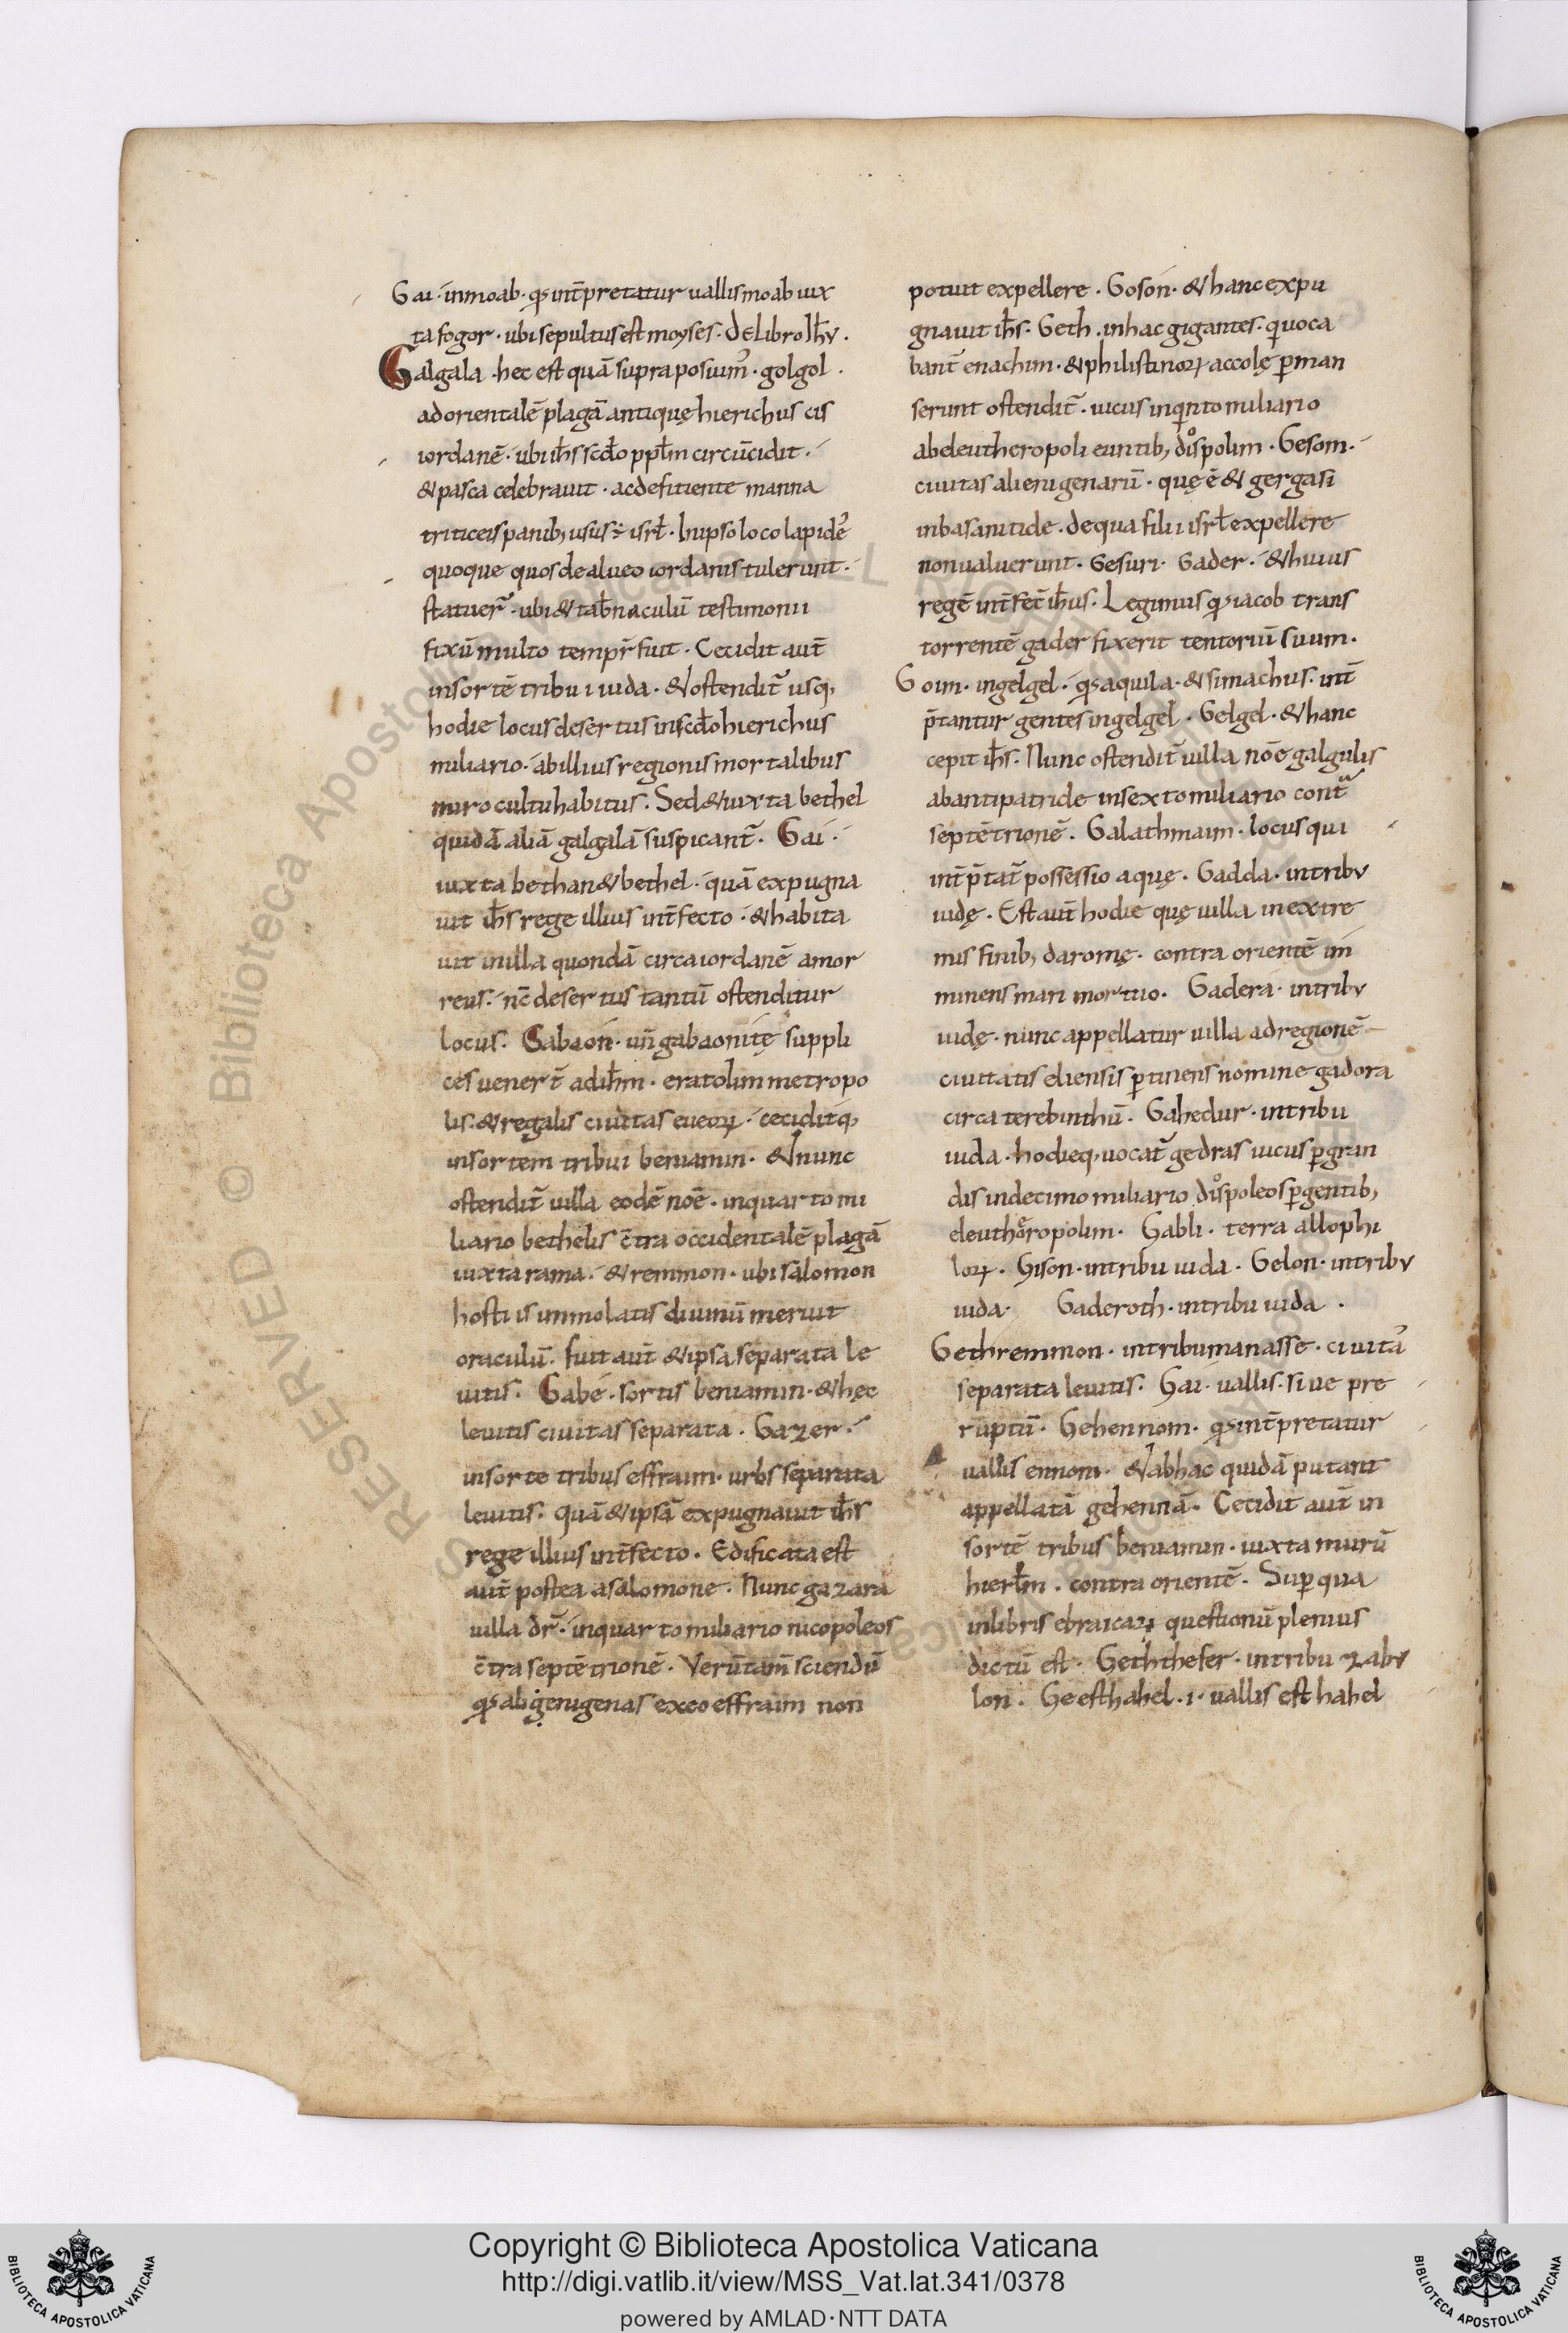 Gai · inmoab · qđ int̄pretatur uallis moab iux
ta fogor · ubi sepultus est moyses · de Libro Ih̄v ·
Galgala · hec est quā supra posuim᾽ · golgol ·
ad orientalē plagā antiquę hierichus cis
iordanē · ubi ih̄s scd̄o ppl̄m circūcidit ·
& pasca celebrauit · ac deficiente manna
triticeis panib; usus ÷ isrl̄ · In ipso loco lapide᾽
quoque quos de alueo iordanis tulerunt ·
statuer̄ · ubi & tab̄naculū testimonii
fixū multo tempr̄ fuit · Cecidit aut̄
in sortē tribui iuda · & ostendit̄ usq;
hodie locus desertus in scd̄o hierichus
miliario · ab illius regionis mortalibus
miro cultu habitus · Sed & iuxta bethel
quidā aliā galgalā suspicant̄ · Gai ·
iuxta bethan & bethel · quā expugna
uit ih̄s rege illius int̄fecto · & habita
uit in illa quondā circa iordanē amor
reus · nc̄ desertus tantū ostenditur
locus · Gabaon · un̄ gabaonitę suppli
ces uenert̄ ad ih̄m · erat olim metropo
lis · & regalis ciuitas eueoꝝ · ceciditq;
in sortem tribui beniamin · & nunc
ostendit̄ uilla eodē noē · in quarto mi
liario bethelis c̄tra occidentalē plagā
iuxta rama · & remmon · ubi salomon
hostiis immolatis diuinū meruit
oraculū · fuit aut̄ & ipsa separata le
uitis · Gabe · sortis beniamin · & hęc
leuitis ciuitas separata · Gazer ·
in sorte tribus effraim · urbs separata
leuitis · quā & ipsā expugnauit ih̄s
rege illius int̄fecto · Edificata est
aut̄ postea a salomone · Nunc gazara
uilla dr̄ · in quarto miliario nicopoleos
c̄tra septētrionē · Verūtam̄ sciendū
qđ abgenigenas ex eo effraim non
potuit expellere · Goson · & hanc expu
gnauit ih̄s · Geth · in hac gigantes · qi uoca
bant̄ enachim · & philistinoꝝ accolę ꝑman
serunt ostendit̄ · uicus in qinto miliario
ab eleutheropoli euntib; diospolim · Gesom ·
ciuitas alienigenarū · quę ē & gergasi
in basanitide · de qua filii isrl̄ expellere
non ualuerunt · Gesuri · Gader · & huius
regē int̄fec̄ ih̄us · Legimus qđ iacob trans
torrentē gader fixerit tentoriū suum ·
Goim · in gelgel · qđ aquila · & simachus · int̄
p̄tantur gentes in gelgel · Gelgel · & hanc
cepit ih̄s · Nunc ostendit̄ uilla noē galgulis
ab antipatride in sexto miliario cont̄a
septētrionē · Galathmaim · locus qui
int̄p̄tat̄ possessio aquę · Gadda · in tribv
iudę · Est aut̄ hodie quę uilla in extre
mis finib; daromę · contra orientē im
minens mari mortuo · Gadera · in tribv
iudę · nunc appellatur uilla ad regionē
ciuitatis eliensis ꝑtinens nomine gadora
circa terebinthū · Gahedur · in tribu
iuda · hodieq; uocat̄ gedras uicus ꝑgran
dis in decimo miliario diospoleos ꝑgentib;
eleutheropolim · Gabli · terra allophi
loꝝ · Gison · in tribu iuda · Gelon · in tribv
iuda · Gaderoth · in tribu iuda ·
Gethremmon · in tribu manasse · ciuita᾽
separata leuitis · Gai · uallis · siue pre
ruptū · Gehennom · qđ int̄pretatur
uallis ennom · & ab hac quidā putant
appellatā gehennā · Cecidit aut̄ in
sortē tribus beniamin · iuxta murū
hierl̄m · contra orientē · Suꝑ qua
in libris ebraicaꝝ questionū plenius
dictū est · Geththefer · in tribu zabv
lon · Geesthahel · i · uallis est hahel
Copyright © Biblioteca Apostolica Vaticana
http://digi.vatlib.it/view/MSS_Vat.lat.341/0378
powered by AMLAD·NTT DATA